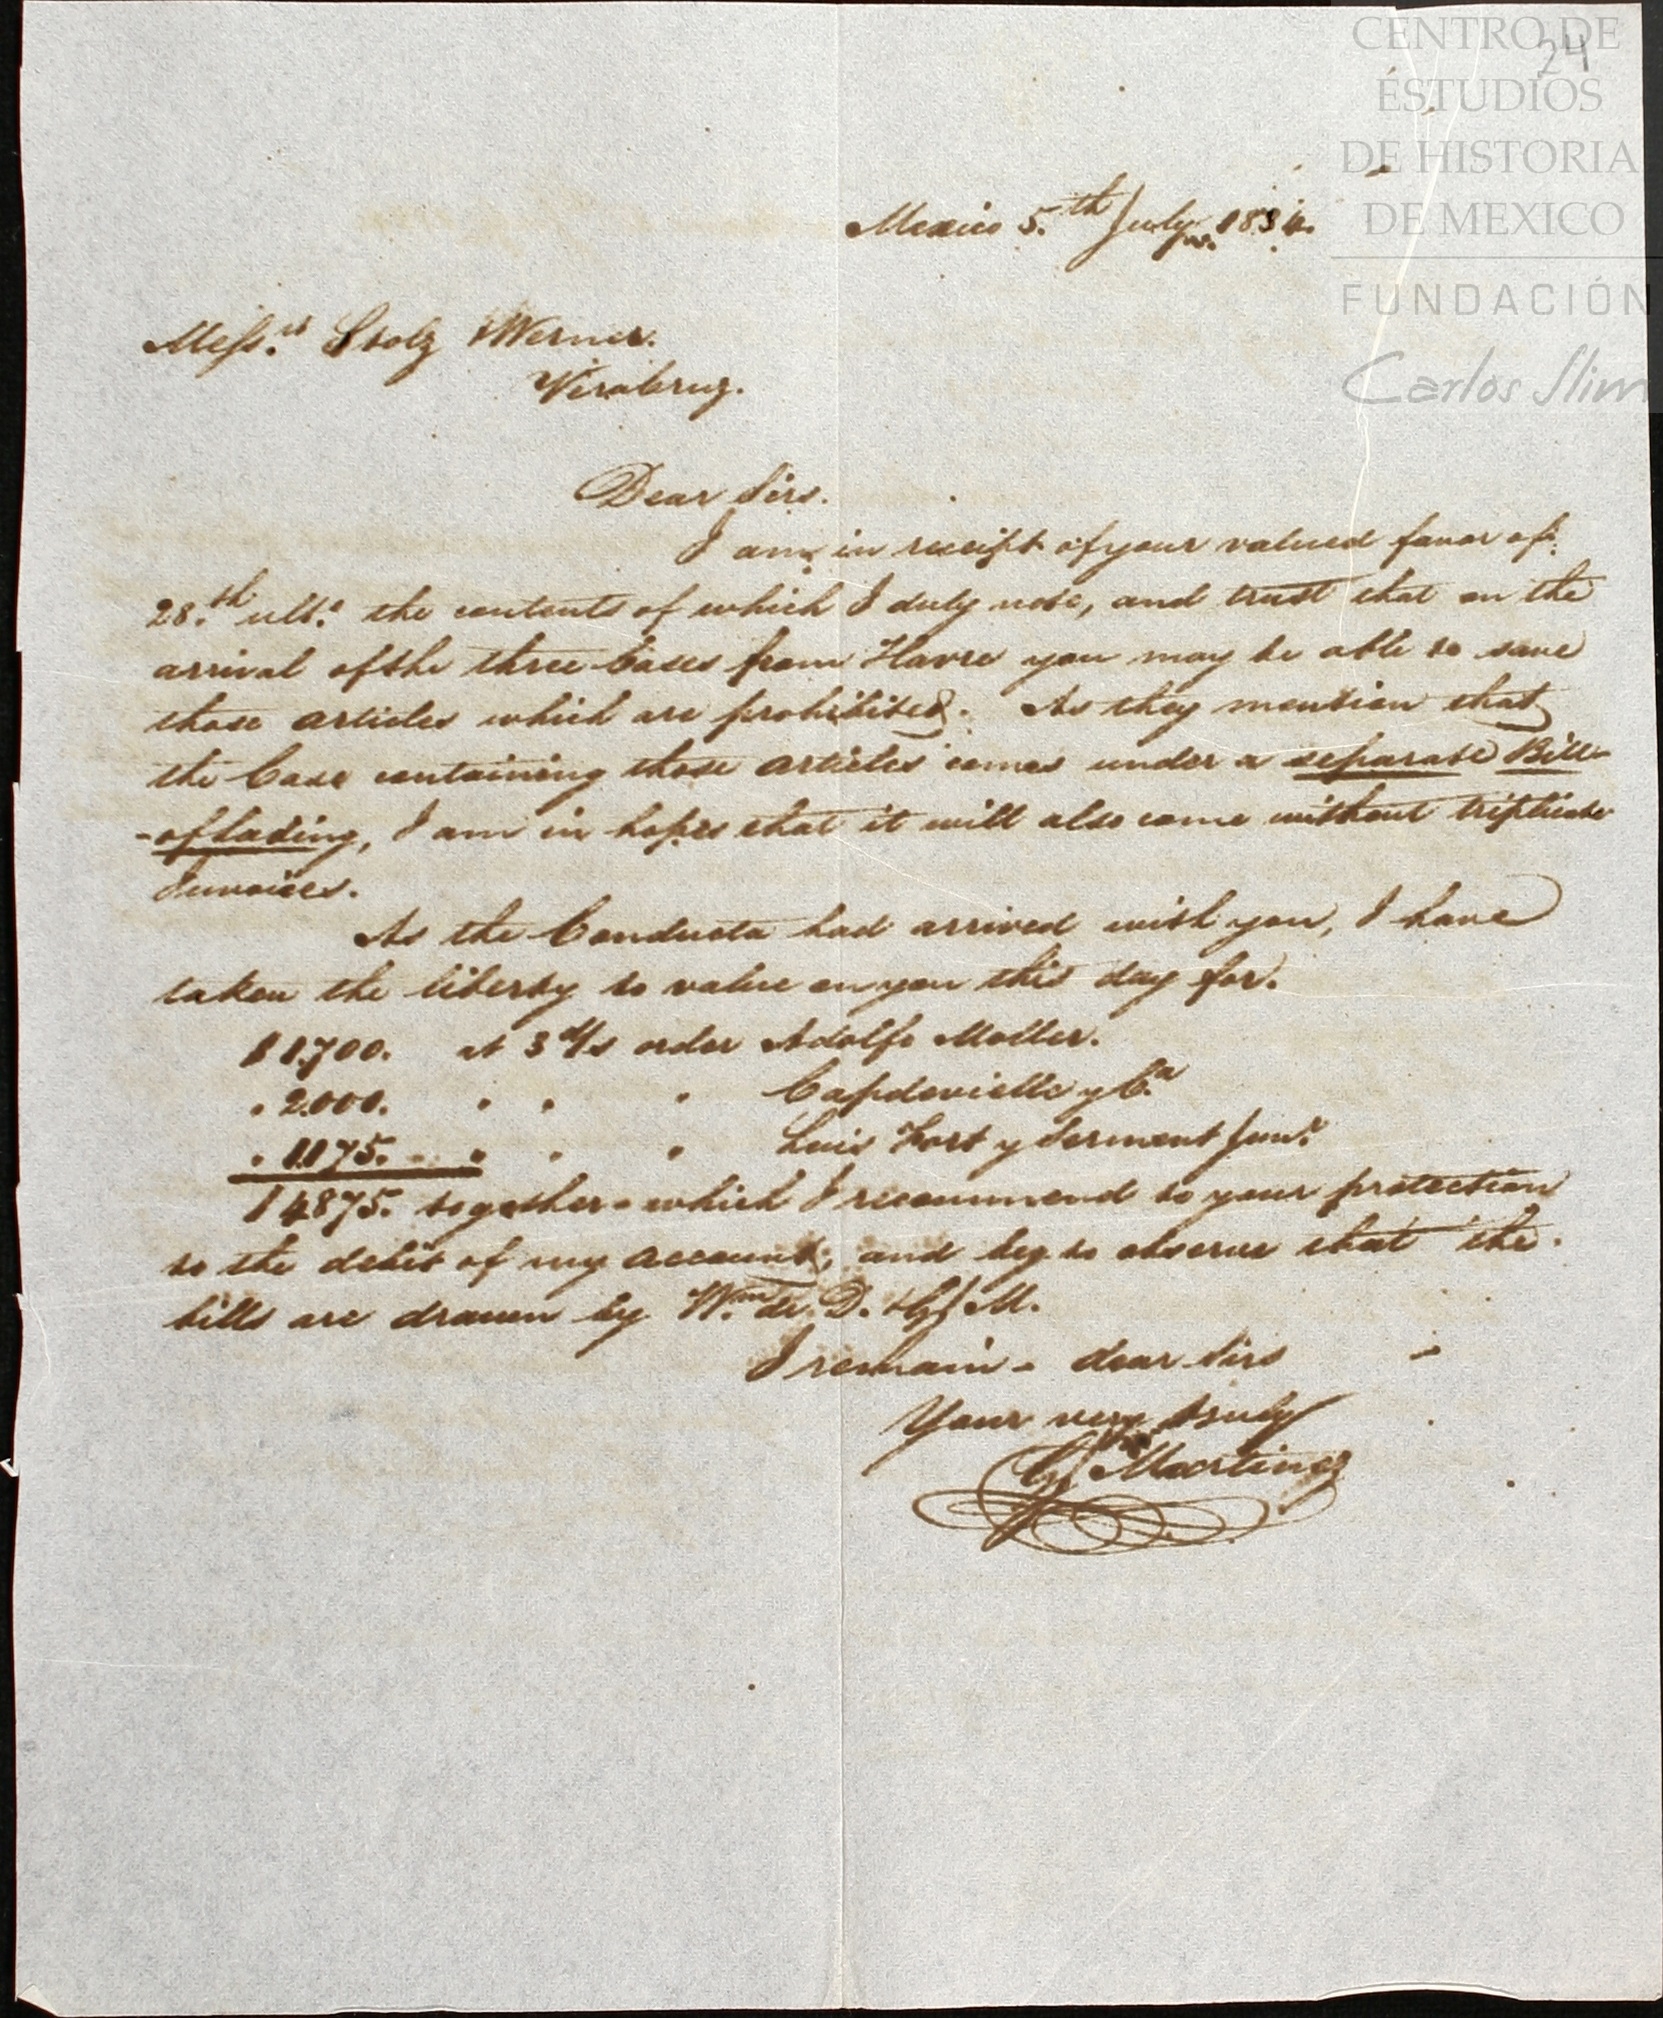 CENTRO DE
ESTUDIOS
DE HISTORIA
DE MEXICO
FUNDACIÓN
Carlos Slim
24
Mexico 5.th July 1834.
Mess.rs Stolz Werner.
Verabruz.
Dear Sirs.
I am in receipt of your valued favor of
28.th ult.o the contents of which I duly note, and trust that on the
arrival of the three Cases from Havre you may be able to save
those articles which are prohibited. As they mention that
the Case containing those articles comes under a separate Bill-
-of lading, I am in hopes that it will also come without triplicate
Invoices.
As the Conducta had arrived with you, I have
taken the liberty to value on you this day for.
$ 1.700. at 3 d/s order Adolfo Moller.
" 2.000. " " " Capdevielle y C.a
" 1.175. " " " Luis Fort y Serment Jun.r
$ 4875. together - which I recommend to your protection
to the debit of my account, and beg to observe that the
bills are drawn by W.m de D. & G J M.
I remain - dear Sirs
Your very truly
G J Martinez